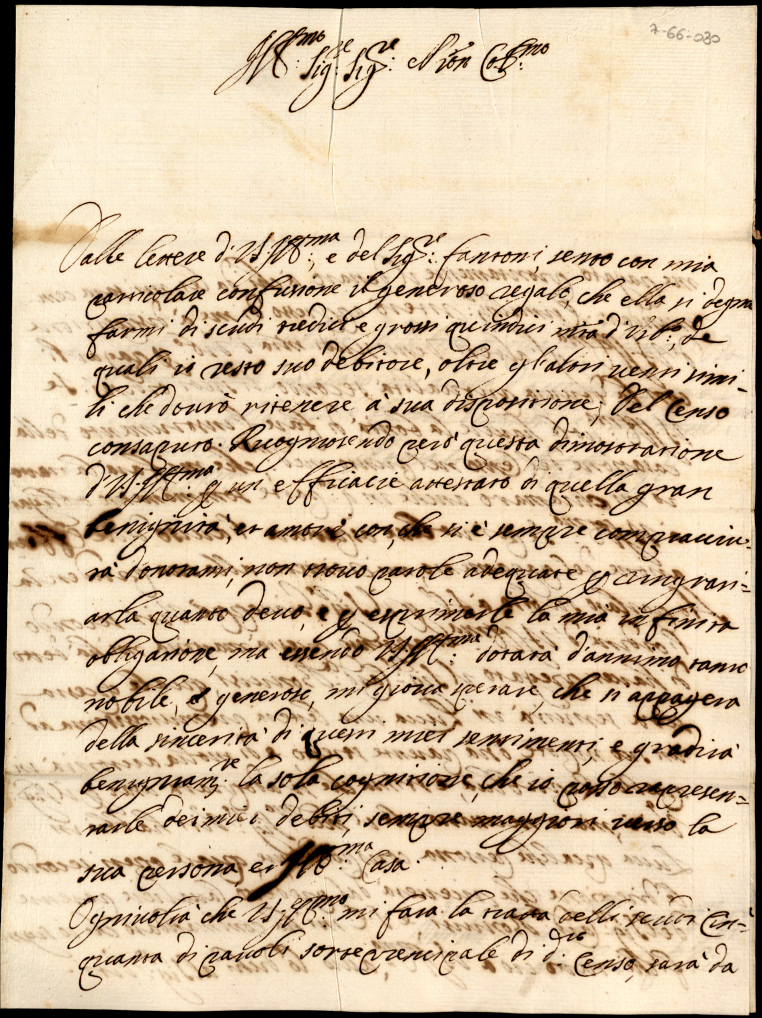 7-66-030
Ill:mo Sig:re Sig:re e P'ron Col:mo
Dalle lettere di V.S. Ill:ma, e del Sig:re Fantoni, sento con mia
particolare confusione il generoso regalo, che ella si degna
farmi di scudi tredici e grossi quindici m:ta d'Vrb:o, de
quali io resto suo debitore, oltre gl'altri venti simi-
li che dourò ritenere à sua dispositione, Del Censo
consaputo. Ricognoscendo però questa dimostratione
d'V.S. Ill:ma p un efficacie attestato di quella gran
benignità, et amore con, che si è sempre compiacciu-
ta donorami, non trouo parole adequate p ringrati-
arla quanto deuo, e p esprimerle la mia infinita
obligatione, ma essendo V.S. Ill:ma dotata d'annimo tanto
nobile, e generoso, mi gioua sperare, che si appagera
della sincerità di questi miei sentimenti, e gradirà
benigniam:te la sola cognitione, che io posso rapresen-
tarle dei miei debiti, sempre maggiori verso la
sua persona, et Ill:ma Casa.
Ogniuolta che V.S. Ill:mo mi fara la tratta delli scudi Cin-
quanta di pauoli sorte principale di d:to Censo, sarà da